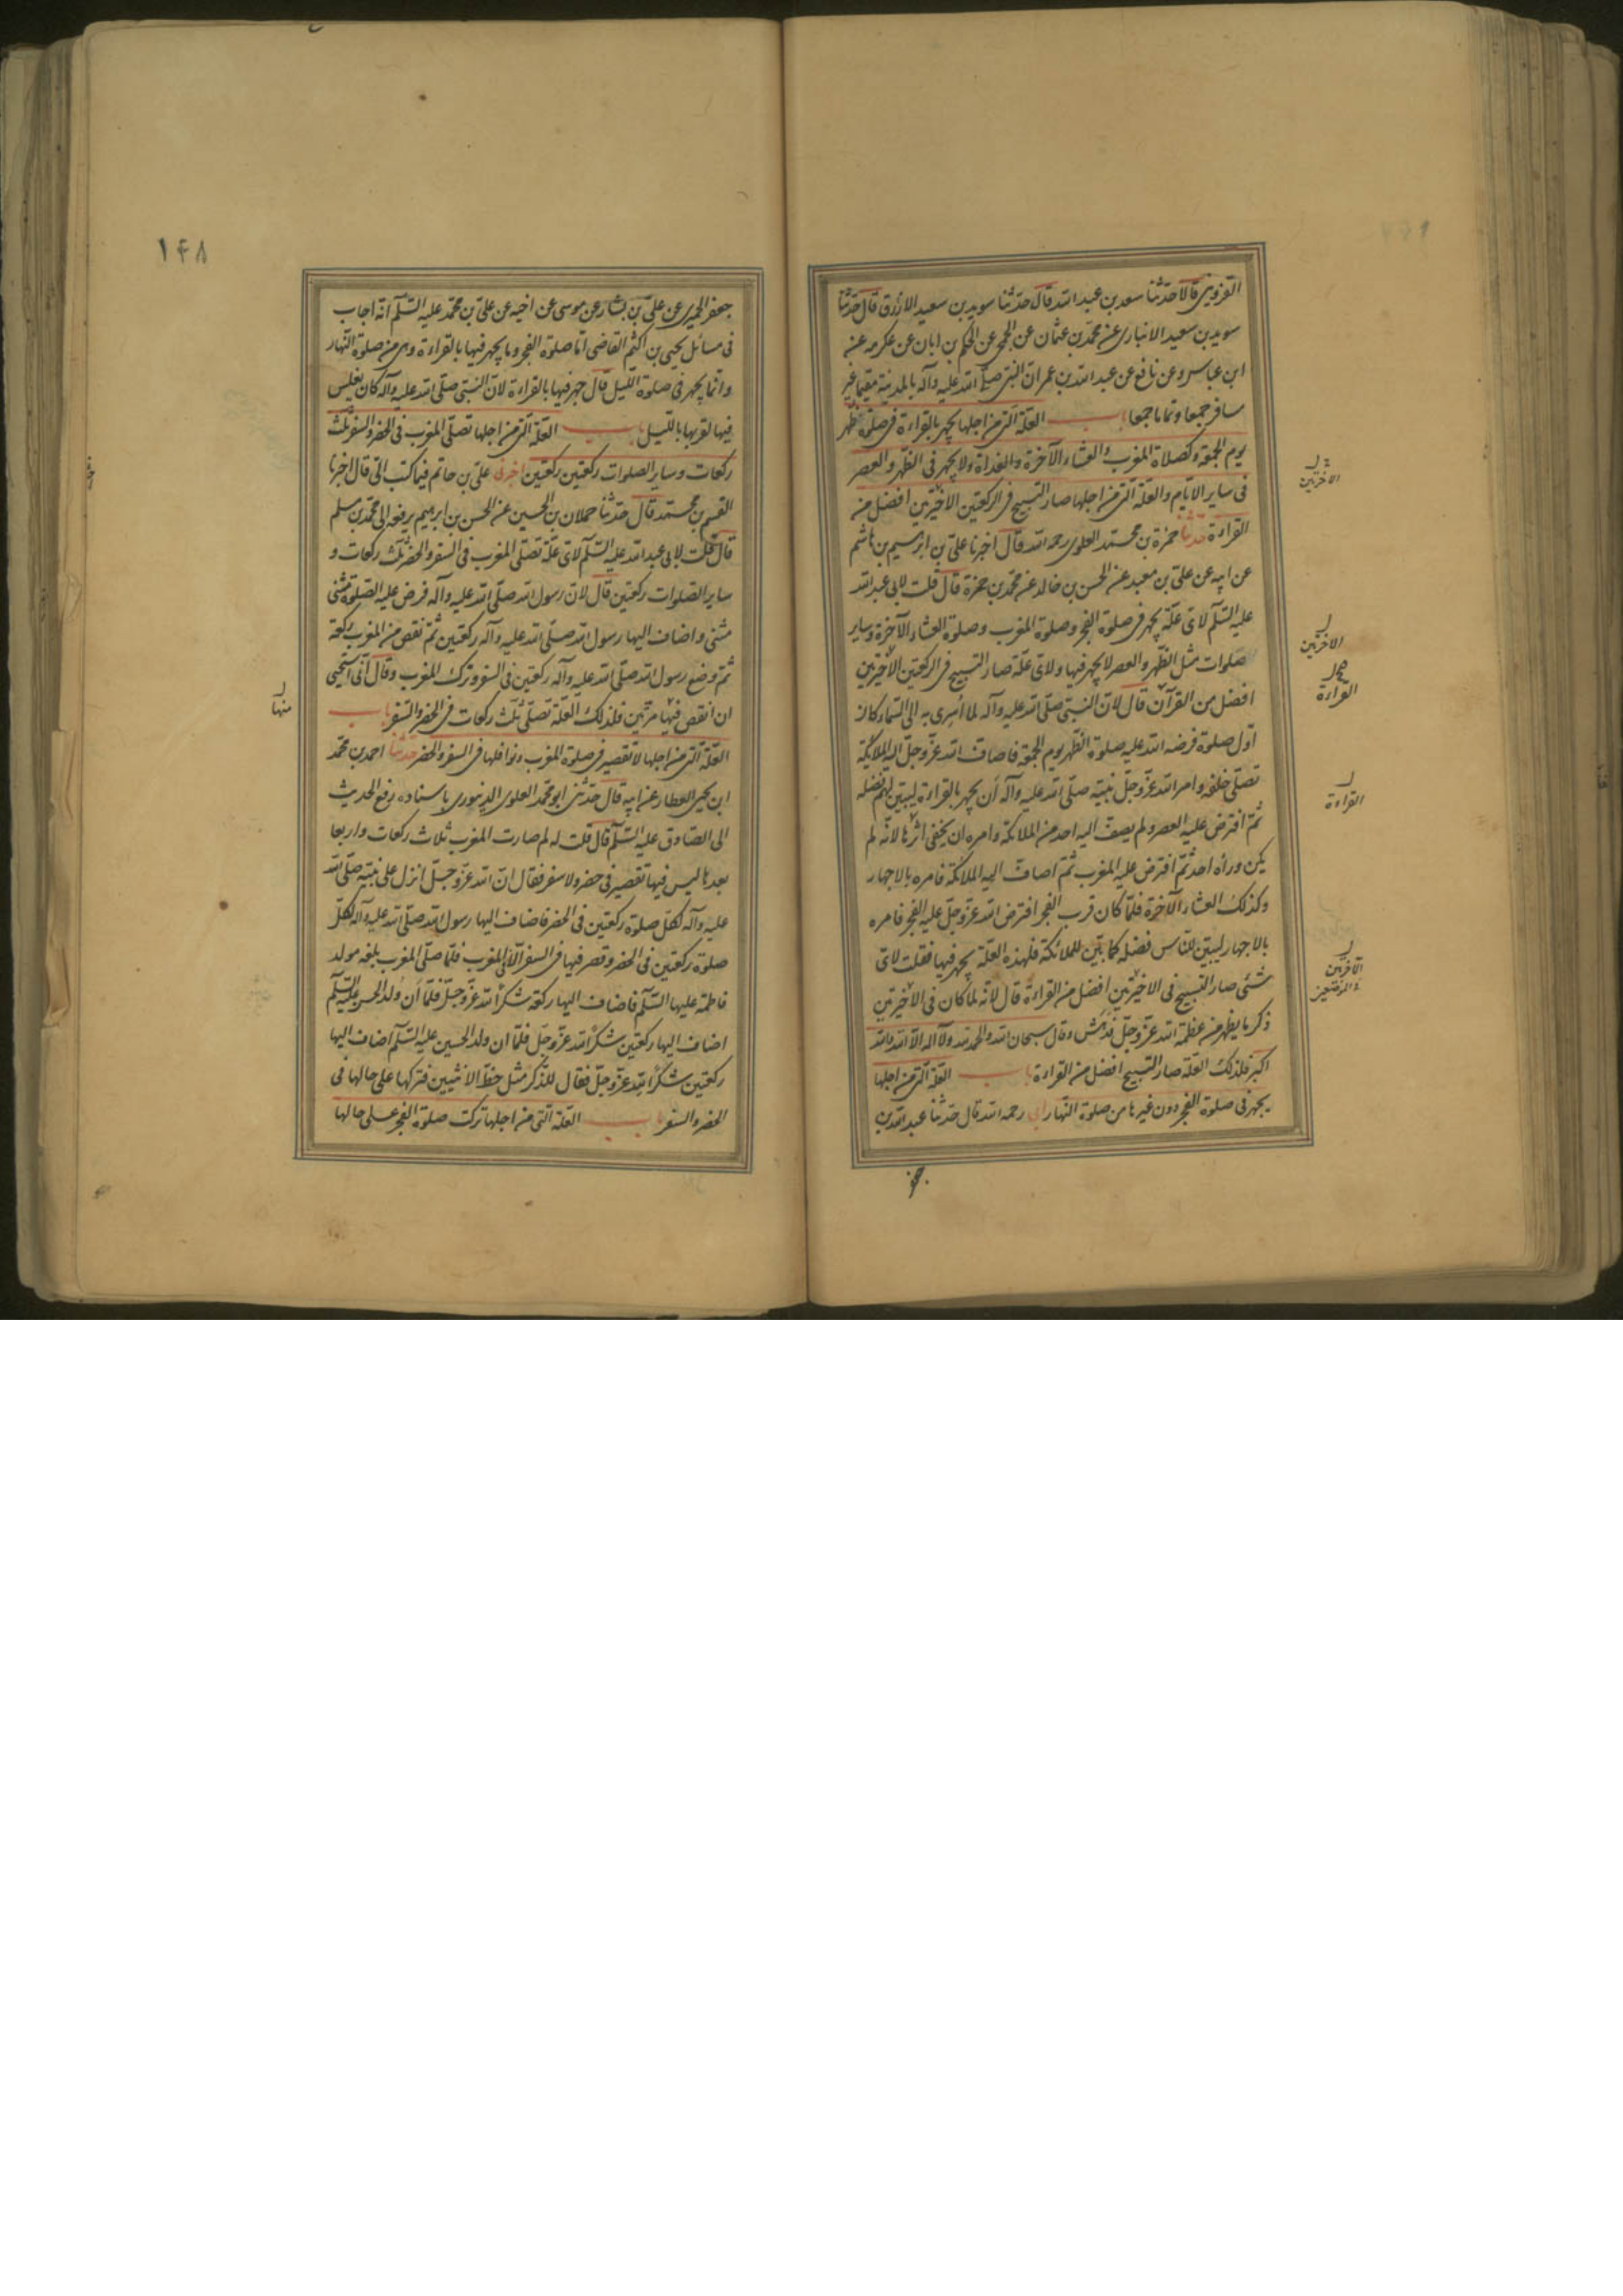 القزوينى قالا حدثنا سعد بن عبد الله قال حدثنا سويد بن سعيد الازرق قال حدثنا
سويد بن سعيد الانبارى عن محمد بن عثمان عن الجمحى عن الحكم بن ابان عن عكرمه عن
ابن عباس وعن نافع عن عبد الله بن عمر ان النبى صلى الله عليه وآله بالمدينة مقيما غير
مسافر جميعا وتماما جمعا باب العلة التى من اجلها يجهر بالقراءة فى صلوة ظهر
يوم الجمعة وكصلاة المغرب والعشاء الآخرة والغداة ولا يجهر فى الظهر والعصر
فى ساير الايام والعلة التى من اجلها صار التسبيح فى الركعتين الاخيرتين افضل من
القراءة حدثنا حمزة بن محمد العلوى رحمه الله قال اخبرنا على بن ابراهيم بن هاشم
عن ابيه عن على بن معبد عن الحسن بن خالد عن محمد بن حمزة قال قلت لابى عبد الله
عليه السلم لاى علة يجهر فى صلوة الفجر وصلوة المغرب وصلوة العشاء الآخرة وساير
صلوات مثل الظهر والعصر لا يجهر فيها ولاى علة صار التسبيح فى الركعتين الاخيرتين
افضل من القرآن قال لان النبى صلى الله عليه وآله لما اسرى به الى السماء كان
اول صلوة فرضه الله عليه صلوة الظهر يوم الجمعة فاضاف الله عز وجل اليه الملائكة
تصلى خلفه وامر الله عز وجل نبيه صلى الله عليه وآله ان يجهر بالقراءة ليبين لهم فضله
ثم افترض عليه العصر ولم يضف اليه احد من الملائكة وامره ان يخفى لانه لم
يكن وراه احد ثم افترض عليه المغرب ثم اضاف اليه الملائكة فامره بالاجهار
وكذلك العشاء الآخرة فلما كان قرب الفجر افترض الله عز وجل عليه الفجر فامره
بالاجهار ليبين للناس فضله كما بين للملائكة فلهذه العلة يجهر فيها فقلت لاى
شئ صار التسبيح فى الاخيرتين افضل من القراءة قال لانه لما كان فى الاخيرتين
ذكر ما يظهر من عظمة الله عز وجل فدهش وقال سبحان الله والحمد لله ولا اله الا الله والله
اكبر فلذلك العلة صار التسبيح افضل من القراءة باب العلة التى من اجلها
يجهر فى صلوة الفجر دون غيرها من صلوة النهار ابى رحمه الله قال حدثنا عبد الله بن
جعفر
الاخرتين
الاخرتين
القراءة
القراءة
الآخرتين
١٤٨
جعفر الحميرى عن على بن بشار عن موسى عن اخيه عن على بن محمد عليه السلم انه اجاب
فى مسائل يحيى بن اكثم القاضى اما صلوة الفجر وما يجهر فيها بالقراءة وهى من صلوة النهار
وانما يجهر فى صلوة الليل قال جهر فيها بالقراءة لان النبى صلى الله عليه وآله كان يغلس
فيها لقربها بالليل باب العلة التى من اجلها تصلى المغرب فى الحضر والسفر ثلث
ركعات وساير الصلوات ركعتين ركعتين اخبرنى على بن حاتم فيما كتب الى قال اخبرنا
القسم بن محمد قال حدثنا حملان بن الحسين عن الحسن بن ابرهيم يرفعه الى محمد بن مسلم
قال قلت لابى عبد الله عليه السلم لاى علة تصلى المغرب فى السفر والحضر ثلث ركعات و
ساير الصلوات ركعتين قال لان رسول الله صلى الله عليه وآله فرض عليه الصلوة مثنى
مثنى واضاف اليها رسول الله صلى الله عليه وآله ركعتين ثم نقص من المغرب ركعة
ثم وضع رسول الله صلى الله عليه وآله ركعتين فى السفر وترك المغرب وقال انى استحيى
ان انقص فيها مرتين فلذلك العلة تصلى ثلث ركعات فى الحضر والسفر باب
العلة التى من اجلها لا تقصير فى صلوة المغرب ونوافلها فى السفر والحضر حدثنا احمد بن محمد
ابن يحيى العطار عن ابيه قال حدثنى ابو محمد العلوى الدينورى باسناده رفع الحديث
الى الصادق عليه السلم قال قلت له لم صارت المغرب ثلاث ركعات واربعا
بعدها ليس فيها تقصير فى حضر ولا سفر فقال ان الله عز وجل انزل على نبيه صلى الله
عليه وآله لكل صلوة ركعتين فى الحضر فاضاف اليها رسول الله صلى الله عليه وآله لكل
صلوة ركعتين فى الحضر وقصر فيها فى السفر الا المغرب فلما صلى المغرب بلغه مولد
فاطمة عليها السلم فاضاف اليها ركعة شكرا لله عز وجل فلما ان ولد الحسن عليه السلم
اضاف اليها ركعتين شكرا لله عز وجل فلما ان ولد الحسين عليه السلم اضاف اليها
ركعتين شكرا لله عز وجل فقال للذكر مثل حظ الانثيين فتركها على حالها فى
الحضر والسفر باب العلة التى من اجلها تركت صلوة الفجر على حالها
منها